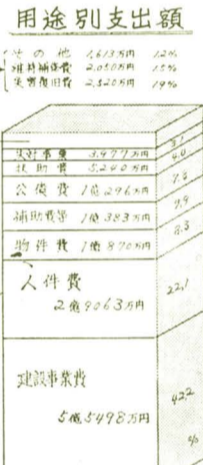 用途別支出額
その他 1,613万円 1.2%
維持補修費 2,050万円 1.5%
災害復旧費 2,520万円 1.9%
3.1
失対事業 3,977万円
4.0
扶助費 5,240万円
7.8
公債費 1億296万円
7.9
補助費等 1億383万円
8.3
物件費 1億870万円
人件費
2億9063万円
22.1
建設事業費
5億5498万円
42.2
%